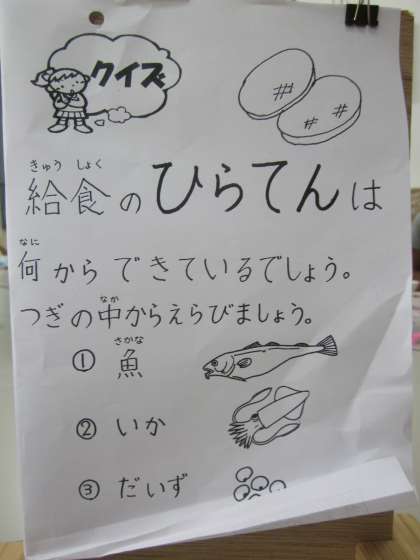 クイズ
きゅう しょく
給食のひらてんは
なに
何からできているでしょう。
なか
つぎの中からえらびましょう。
さかな
① 魚
② いか
③ だいず